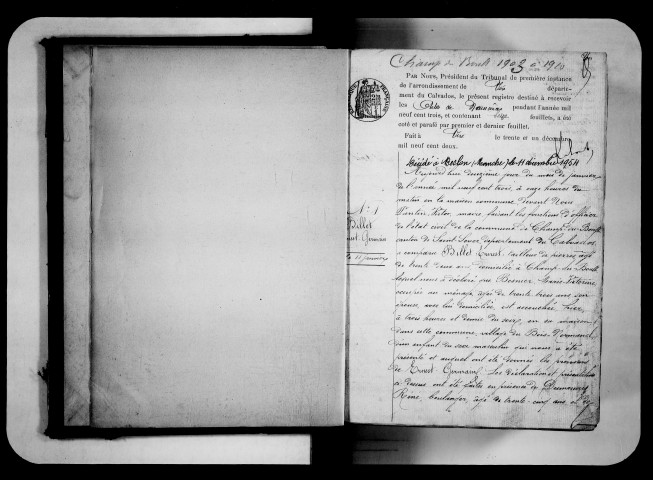 Champ du Boult 1903 à 1910
Par Nous, Président du Tribunal de première instance
de l'arrondissement de Vire départe-
ment du Calvados, le présent registre destiné à recevoir
les Actes de Naissance pendant l'année mil
neuf cent trois, et contenant feuillets, a été
coté et parafé par premier et dernier feuillet.
Fait à Vire le trente et un décembre
mil neuf cent deux.
Décédé à Beslon (Manche) le 11 décembre 1954
N° 1
Billet
Ernest Germain
le 11 janvier
Aujourd'hui douzième jour du mois de janvier
de l'année mil neuf cent trois, à onze heures du
matin en la maison commune devant Nous
Victor, maire, faisant les fonctions d'officier
de l'état civil de la commune de Champ-du-Boult
canton de Saint-Sever, département du Calvados,
a comparu Billet Ernest, tailleur de pierres, âgé
de trente deux ans, domicilié à Champ-du-Boult
lequel nous a déclaré que Marie
occupée au ménage, âgée de trente trois ans, son
épouse, avec lui domiciliée, est accouchée hier,
à trois heures et demie du soir, en sa maison
dans cette commune, village du Bois-Normand,
d'un enfant du sexe masculin qui nous a été
présenté et auquel ont été donnés les prénoms
de Ernest Germain. Les déclaration et présentation
ci-dessus ont été faites en présence de
René, boulanger, âgé de trente-cinq ans, et de